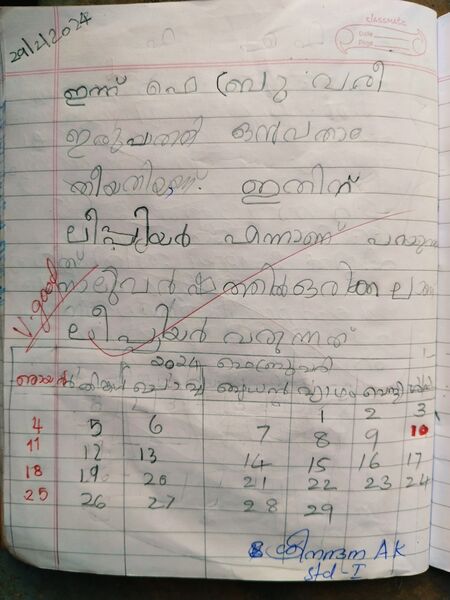 29/2/2024
classmate
Date
Page
ഇന്ന് ഫെ ബ്രു വരി
ഇരുപത്തി ഒൻപതാം
തീയതിയാണ്. ഇതിന്
ലീപ്പിയർ എന്നാണ് പറയുന്ന
ത്
നാലുവർഷത്തിൽ ഒരിക്കലാണ്
ലീപ്പിയർ വരുന്നത്
V. good
2024 ഫെബ്രുവരി
ഞായർ തിങ്കൾ ചൊവ്വ ബുധൻ വ്യാഴം വെള്ളി ശനി
1 2 3
4 5 6 7 8 9 10
11 12 13 14 15 16 17
18 19 20 21 22 23 24
25 26 27 28 29
A K
std - I